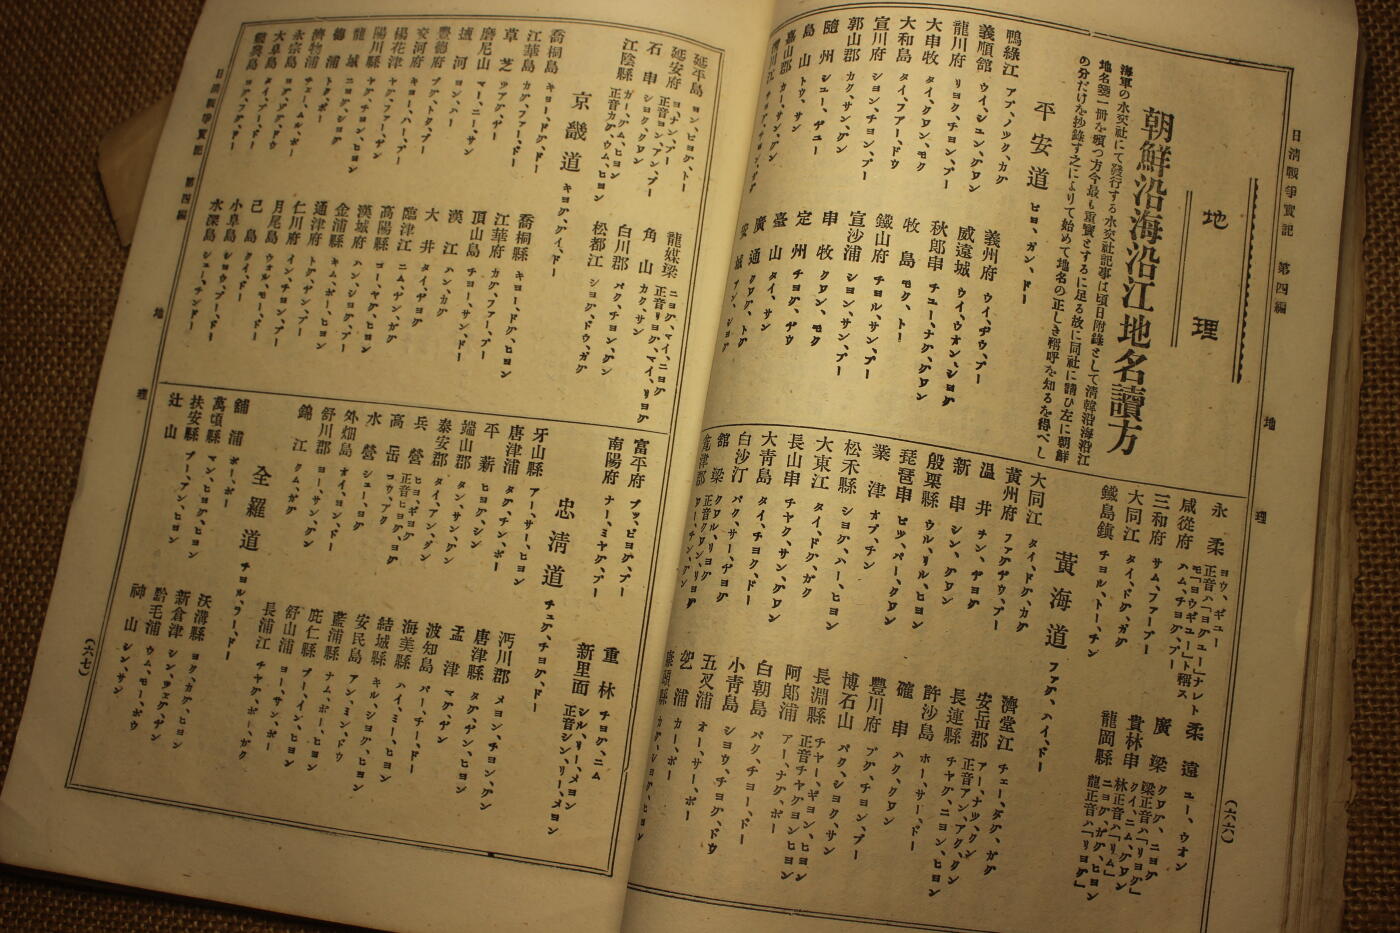 日清戰爭實記 第四編
地理
(六六)
地理
朝鮮沿海沿江地名讀方
海軍の水交社にて發行する水交社記事は頃日附錄として淸韓沿海沿江
地名箋一冊を頒つ方今最も重寶とするに足る故に同社に請ひ左に朝鮮
の分だけを抄錄す之によりて始めて地名の正しき稱呼を知るを得べし
平安道 ピヨ、ガン、ドー
鴨綠江 アプ、ノツク、カグ
義州府 ウイ、ヂウ、プー
義順舘 ウイ、シユン、グワン
威遠城 ウイ、ウオン、シヨグ
龍川府 リヨク、チヨン、プー
秋郎串 チユー、ナグ、グワン
大申牧 タイ、クワン、モク
牧島 モク、トー
大和島 タイ、フアー、ドウ
鐵山府 チヨル、サン、プー
宣川府 シヨン、チヨン、プー
宣沙浦 シヨン、サン、プー
郭山郡 カク、サン、グン
申牧 クワン、モク
隨州 シユー、ヂユー
定州 チヨグ、ヂウ
島山 トウ、サン
臺山 タイ、サン
嘉山郡 カー、サン、グン
廣通 クワグ、トグ
安城 アン、シヨグ
永柔 ヨウ、ギユー
柔遠 ユー、ウオン
咸從府 ハム、チヨグ、プー
廣梁 クワグ、ニヨグ
三和府 サム、フアー、プー
貴林串 クイ、ニム、グワン
大同江 タイ、ドグ、ガグ
龍岡縣 ニヨグ、ガグ、ヒヨン
鐵島鎭 チヨル、トー、チン
黃海道 フアグ、ハイ、ドー
大同江 タイ、ドグ、カグ
濟堂江 チエー、タグ、ガグ
黃州府 フアグ、ヂウ、プー
安岳郡 アー、ナツ、クン
溫井 チン、ヤヨグ
長連縣 チヤグ、ニヨン、ヒヨン
新串 シン、グワン
許沙島 ホー、サー、ドー
殷栗縣 ウル、リル、ヒヨン
確串 ハク、クワン
琵琶串 ピツ、パー、クワン
豐川府 プグ、チヨン、プー
業津 オプ、チン
博石山 パク、シヨク、サン
松禾縣 シヨグ、ハー、ヒヨン
長淵縣 チヤー、ギヨン、ヒヨン
大東江 タイ、ドグ、ガグ
阿郎浦 アー、ナグ、ポー
長山串 チヤク、サン、グワン
白朝島 パク、チヨー、ドー
大靑島 タイ、チヨク、ドー
小靑島 シヨウ、チヨグ、ドウ
白沙汀 パク、サー、ヂヨグ
五叉浦 オー、サー、ポー
舘梁 クワル、リヨグ
延平島 ヨン、ピヨグ、トー
龍媒梁 ニヨグ、マイ、ニヨグ
延安府 ヨナン、プー
石串 シヨク、クワン
角山 カク、サン
江陰縣 ガー、グム、ヒヨン
白川郡 パク、チヨン、グン
京畿道 キヨグ、グイ、ドー
松都江 シヨグ、ドウ、ガグ
喬桐島 キヨー、ドグ、ドー
喬桐縣 キヨー、ドグ、ヒヨン
江華島 カグ、フアー、ドー
江華府 カグ、フアー、プー
草芝 ツアグ、ヂー
頂山島 チヨー、サン、ドー
磨尼山 マー、ニー、サン
漢江 ハン、カグ
大井 タイ、ヤヨグ
豐德府 プグ、トク、プー
臨津江 ニム、ヤン、ガグ
交河府 キヨー、ハー、プー
高陽縣 コー、ヤグ、ヒヨン
楊花津 ヤグ、フアー、ヤン
漢城府 ハン、シヨグ、プー
陽川縣 ヤグ、チヨン、ヒヨン
金浦縣 キム、ポー、ヒヨン
龍城 ニヨグ、シヨグ
通津府 トグ、ヤン、プー
德浦 トク、ポー
仁川府 イン、チヨン、プー
濟物浦 チエー、ムル、ポー
月尾島 ウオル、ミー、ドー
永宗島
己島
大阜島 タイ、プー、ドー
小阜島 シヨウ、プー、ドー
水深島 シユー、チン、ドー
富平府 プツ、ピヨグ、プー
重林 チヨグ、ニム
南陽府 ナー、ミヤグ、プー
新里面 シル、リー、メヨン
忠淸道 チユグ、チヨグ、ドー
牙山縣 アー、サー、ヒヨン
沔川郡 メヨン、チヨン、グン
唐津浦 タグ、チン、ポー
唐津縣 タグ、ヤン、ヒヨン
平薪 ピヨグ、シン
孟津 マグ、ヤン
端山郡 タン、サン、グン
波知島 パー、チー、ドー
泰安郡 タイ、アン、グン
海美縣 ハイ、ミー、ヒヨン
兵營 ピヨ、ギヨグ
結城縣 キル、シヨグ、ヒヨン
高岳 コウ、アク
安民島 アン、ミン、ドウ
水營 シユー、ヨグ
藍浦縣 ナム、ポー、ヒヨン
外畑島 オイ、ヨン、ドー
庇仁縣 ピー、イン、ヒヨン
舒川郡 ヨー、サン、グン
舒山浦 ヨー、サン、ポー
錦江 クム、ガグ
長浦江 チヤグ、ポー、ガク
全羅道 チヨル、フー、ドー
舖浦 ポー、ポー
沃溝縣 ヨク、カグ、ヒヨン
萬頃縣 マン、ヒヨグ、ヒヨン
新倉津 シン、ツアグ、ヤン
扶安縣 プー、アン、ヒヨン
黔毛浦 ウム、モー、ポウ
辻山
神山 シン、サン
日清戰爭實記 第四編
地理
(六七)